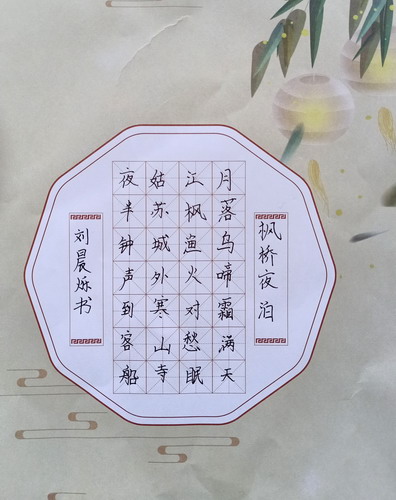 枫桥夜泊
月落乌啼霜满天
江枫渔火对愁眠
姑苏城外寒山寺
夜半钟声到客船
刘晨烁书